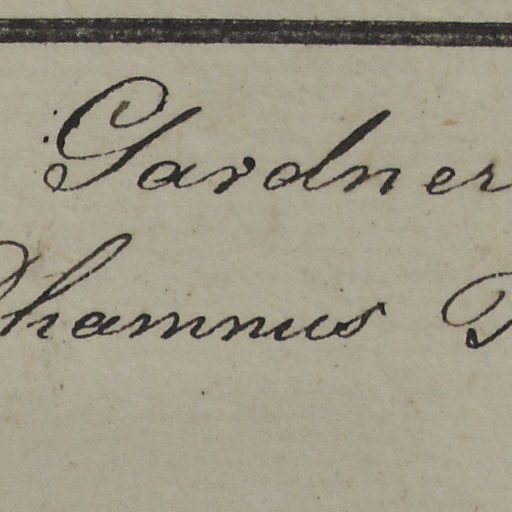 Gardner
Rhamnus